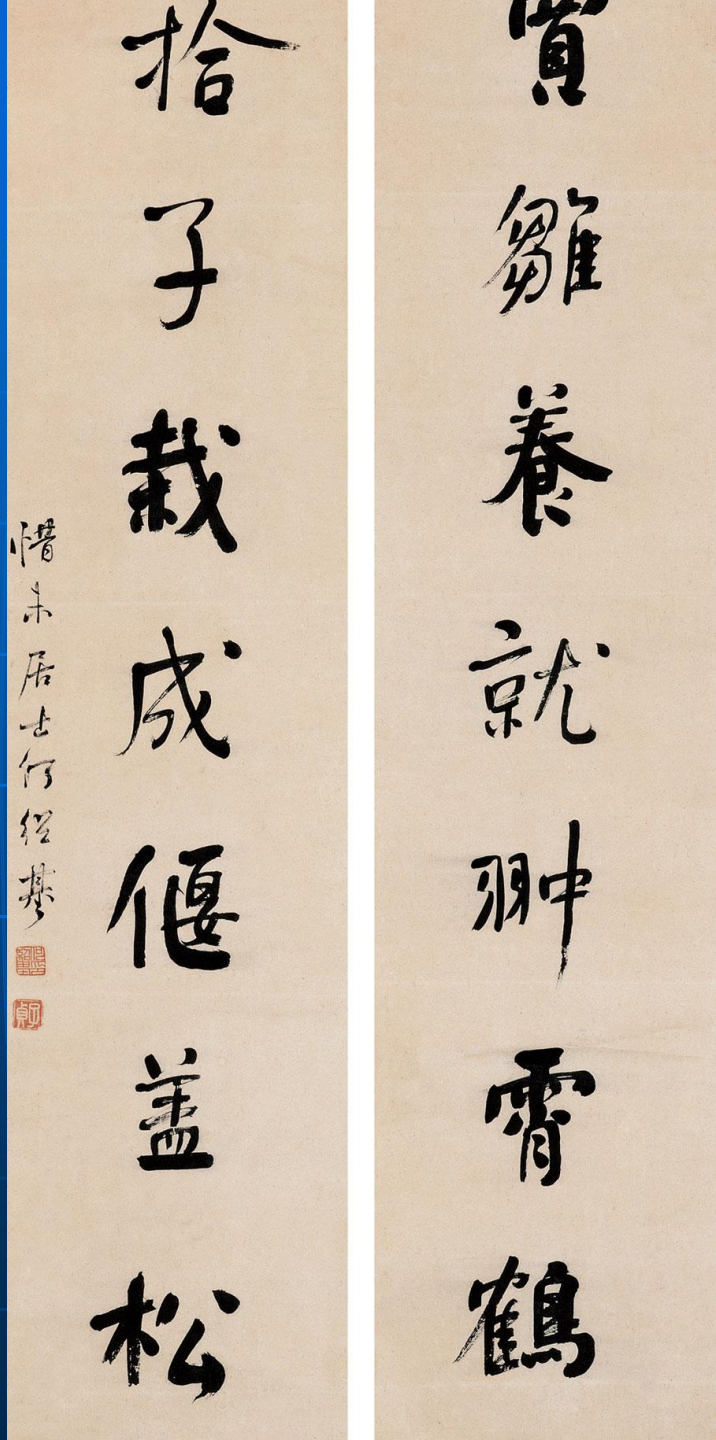 買雛養就翀霄鶴
拾子栽成偃蓋松
惜未居士何紹基
子貞